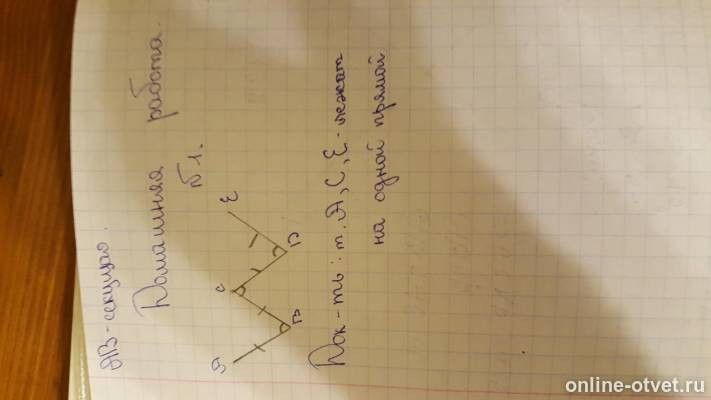 АВ - секущая.
Домашняя работа.
№1.
A
B
C
D
E
Док-ть: т. А, С, Е - лежат
на одной прямой
online-otvet.ru